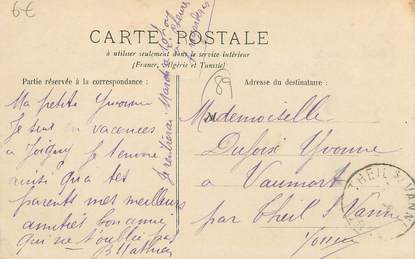 6€
CARTE POSTALE
à utiliser seulement dans le service intérieur
(France, Algérie et Tunisie)
Partie réservée à la correspondance :
Adresse du destinataire :
89
Ma petite Yvonne
Je suis en vacances
à Joigny je t'envoie
ainsi qu'a tes
parents mes meilleurs
amitiés ton amie
qui ne t'oublie pas
B Mathieu
Je rentrerai Mardi
Mademoiselle
Dufoix Yvonne
a Vaumort
par Theil s/ Vanne
Yonne
THEIL S/ VANNE